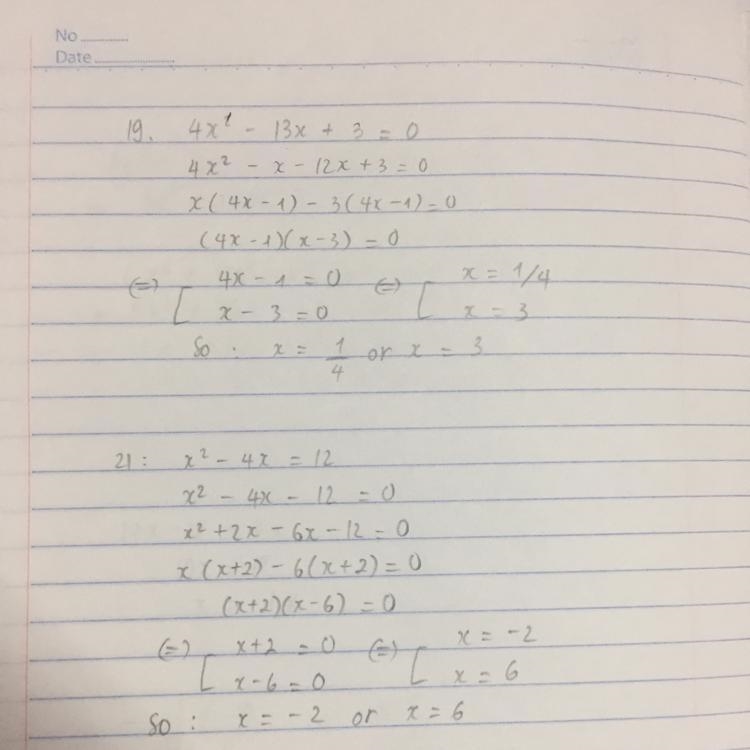 No..........
Date..................
19. 4x² - 13x + 3 = 0
4x² - x - 12x + 3 = 0
x(4x - 1) - 3(4x - 1) = 0
(4x - 1)(x - 3) = 0
(=) [ 4x - 1 = 0 (=) [ x = 1/4
x - 3 = 0 x = 3
So : x = 1/4 or x = 3
21: x² - 4x = 12
x² - 4x - 12 = 0
x² + 2x - 6x - 12 = 0
x(x+2) - 6(x+2) = 0
(x+2)(x-6) = 0
(=) [ x+2 = 0 (=) [ x = -2
x-6 = 0 x = 6
So : x = -2 or x = 6